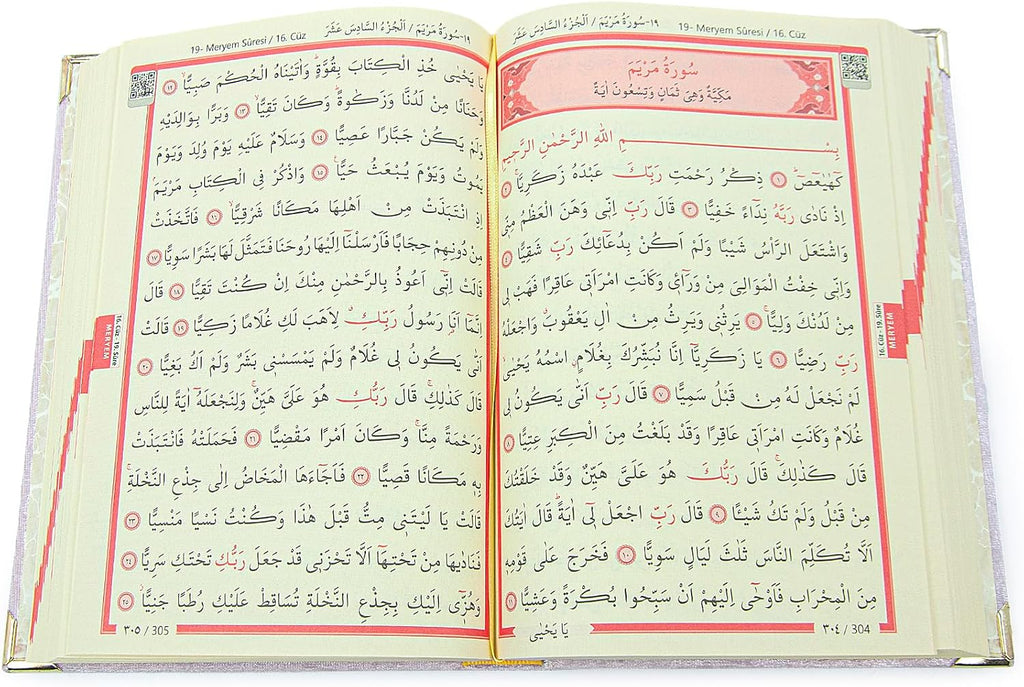 ١٩-سُورَةُ مَرْيَمَ / اَلْجُزْءُ السَّادِسَ عَشَرَ
19- Meryem Sûresi / 16. Cüz
سُورَةُ مَرْيَمَ
مَكِّيَّةٌ وَهِىَ ثَمَانٍ وَتِسْعُونَ اٰيَةً
بِسْمِ اللّٰهِ الرَّحْمٰنِ الرَّحٖيمِ
كٓهٰيٰعٓصٓۜ ﴿١﴾ ذِكْرُ رَحْمَتِ رَبِّكَ عَبْدَهُ زَكَرِيَّاۚ ﴿٢﴾
اِذْ نَادٰى رَبَّهُ نِدَٓاءً خَفِيًّا ﴿٣﴾ قَالَ رَبِّ اِنّٖى وَهَنَ الْعَظْمُ مِنّٖى
وَاشْتَعَلَ الرَّأْسُ شَيْبًا وَلَمْ اَكُنْ بِدُعَٓائِكَ رَبِّ شَقِيًّا ﴿٤﴾
وَاِنّٖى خِفْتُ الْمَوَالِىَ مِنْ وَرَٓاءٖى وَكَانَتِ امْرَاَتٖى عَاقِرًا فَهَبْ لٖى
مِنْ لَدُنْكَ وَلِيًّاۙ ﴿٥﴾ يَرِثُنٖى وَيَرِثُ مِنْ اٰلِ يَعْقُوبَ وَاجْعَلْهُ
رَبِّ رَضِيًّا ﴿٦﴾ يَا زَكَرِيَّٓا اِنَّا نُبَشِّرُكَ بِغُلَامٍۨ اسْمُهُ يَحْيٰىۙ
لَمْ نَجْعَلْ لَهُ مِنْ قَبْلُ سَمِيًّا ﴿٧﴾ قَالَ رَبِّ اَنّٰى يَكُونُ لٖى
غُلَامٌ وَكَانَتِ امْرَاَتٖى عَاقِرًا وَقَدْ بَلَغْتُ مِنَ الْكِبَرِ عِتِيًّا ﴿٨﴾
قَالَ كَذٰلِكَۚ قَالَ رَبُّكَ هُوَ عَلَىَّ هَيِّنٌ وَقَدْ خَلَقْتُكَ
مِنْ قَبْلُ وَلَمْ تَكُ شَيْـًٔا ﴿٩﴾ قَالَ رَبِّ اجْعَلْ لٖٓى اٰيَةًۜ قَالَ اٰيَتُكَ
اَلَّا تُكَلِّمَ النَّاسَ ثَلٰثَ لَيَالٍ سَوِيًّا ﴿١٠﴾ فَخَرَجَ عَلٰى قَوْمِهٖ
مِنَ الْمِحْرَابِ فَاَوْحٰٓى اِلَيْهِمْ اَنْ سَبِّحُوا بُكْرَةً وَعَشِيًّا ﴿١١﴾
يَا يَحْيٰى
٣٠٤ / 304
16. Cüz - 19. Sûre
MERYEM
١٩-سُورَةُ مَرْيَمَ / اَلْجُزْءُ السَّادِسَ عَشَرَ
19- Meryem Sûresi / 16. Cüz
يَا يَحْيٰى خُذِ الْكِتَابَ بِقُوَّةٍۜ وَاٰتَيْنَاهُ الْحُكْمَ صَبِيًّاۙ ﴿١٢﴾
وَحَنَانًا مِنْ لَدُنَّا وَزَكٰوةًۜ وَكَانَ تَقِيًّاۙ ﴿١٣﴾ وَبَرًّا بِوَالِدَيْهِ
وَلَمْ يَكُنْ جَبَّارًا عَصِيًّا ﴿١٤﴾ وَسَلَامٌ عَلَيْهِ يَوْمَ وُلِدَ وَيَوْمَ
يَمُوتُ وَيَوْمَ يُبْعَثُ حَيًّا۟ ﴿١٥﴾ وَاذْكُرْ فِى الْكِتَابِ مَرْيَمَۢ
اِذِ انْتَبَذَتْ مِنْ اَهْلِهَا مَكَانًا شَرْقِيًّاۙ ﴿١٦﴾ فَاتَّخَذَتْ
مِنْ دُونِهِمْ حِجَابًا فَاَرْسَلْنَٓا اِلَيْهَا رُوحَنَا فَتَمَثَّلَ لَهَا بَشَرًا سَوِيًّا ﴿١٧﴾
قَالَتْ اِنّٖٓى اَعُوذُ بِالرَّحْمٰنِ مِنْكَ اِنْ كُنْتَ تَقِيًّا ﴿١٨﴾ قَالَ
اِنَّمَٓا اَنَا رَسُولُ رَبِّكِۗ لِاَهَبَ لَكِ غُلَامًا زَكِيًّا ﴿١٩﴾ قَالَتْ
اَنّٰى يَكُونُ لٖى غُلَامٌ وَلَمْ يَمْسَسْنٖى بَشَرٌ وَلَمْ اَكُ بَغِيًّا ﴿٢٠﴾
قَالَ كَذٰلِكِۚ قَالَ رَبُّكِ هُوَ عَلَىَّ هَيِّنٌۚ وَلِنَجْعَلَهُٓ اٰيَةً لِلنَّاسِ
وَرَحْمَةً مِنَّاۚ وَكَانَ اَمْرًا مَقْضِيًّا ﴿٢١﴾ فَحَمَلَتْهُ فَانْتَبَذَتْ
بِهٖ مَكَانًا قَصِيًّا ﴿٢٢﴾ فَاَجَٓاءَهَا الْمَخَاضُ اِلٰى جِذْعِ النَّخْلَةِۚ
قَالَتْ يَا لَيْتَنٖى مِتُّ قَبْلَ هٰذَا وَكُنْتُ نَسْيًا مَنْسِيًّا ﴿٢٣﴾
فَنَادٰيهَا مِنْ تَحْتِهَٓا اَلَّا تَحْزَنٖى قَدْ جَعَلَ رَبُّكِ تَحْتَكِ سَرِيًّا ﴿٢٤﴾
وَهُزّٖٓى اِلَيْكِ بِجِذْعِ النَّخْلَةِ تُسَاقِطْ عَلَيْكِ رُطَبًا جَنِيًّاۘ ﴿٢٥﴾
٣٠٥ / 305
16. Cüz - 19. Sûre
MERYEM